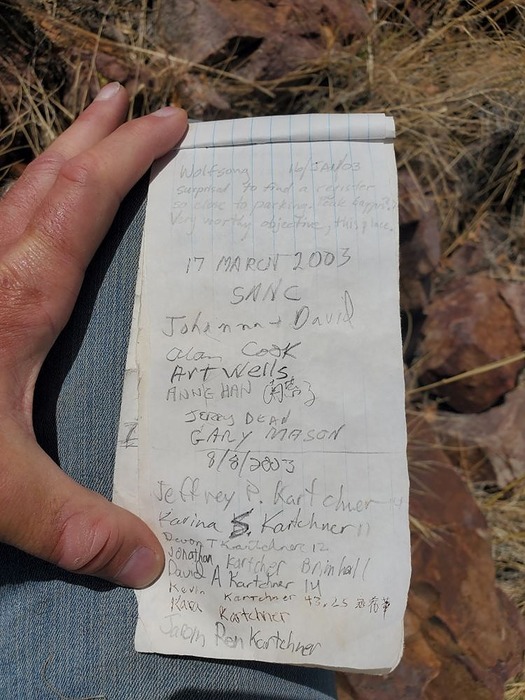 Wolfsong 16/JAN/03
surprised to find a register
so close to parking.
Very worthy objective, this place.
17 MARCH 2003
SANC
Johanna + David
Alan Cook
Art Wells
ANNE HAN
JERRY DEAN
GARY MASON
8/8/2003
Jeffrey P. Kartchner
Karina S. Kartchner 11
Devon T Kartchner 12
Jonathan Kartcher Brimhall
David A Kartchner 14
Kevin Kartchner 43,25
Kara Kartchner
Jarom Ren Kartchner